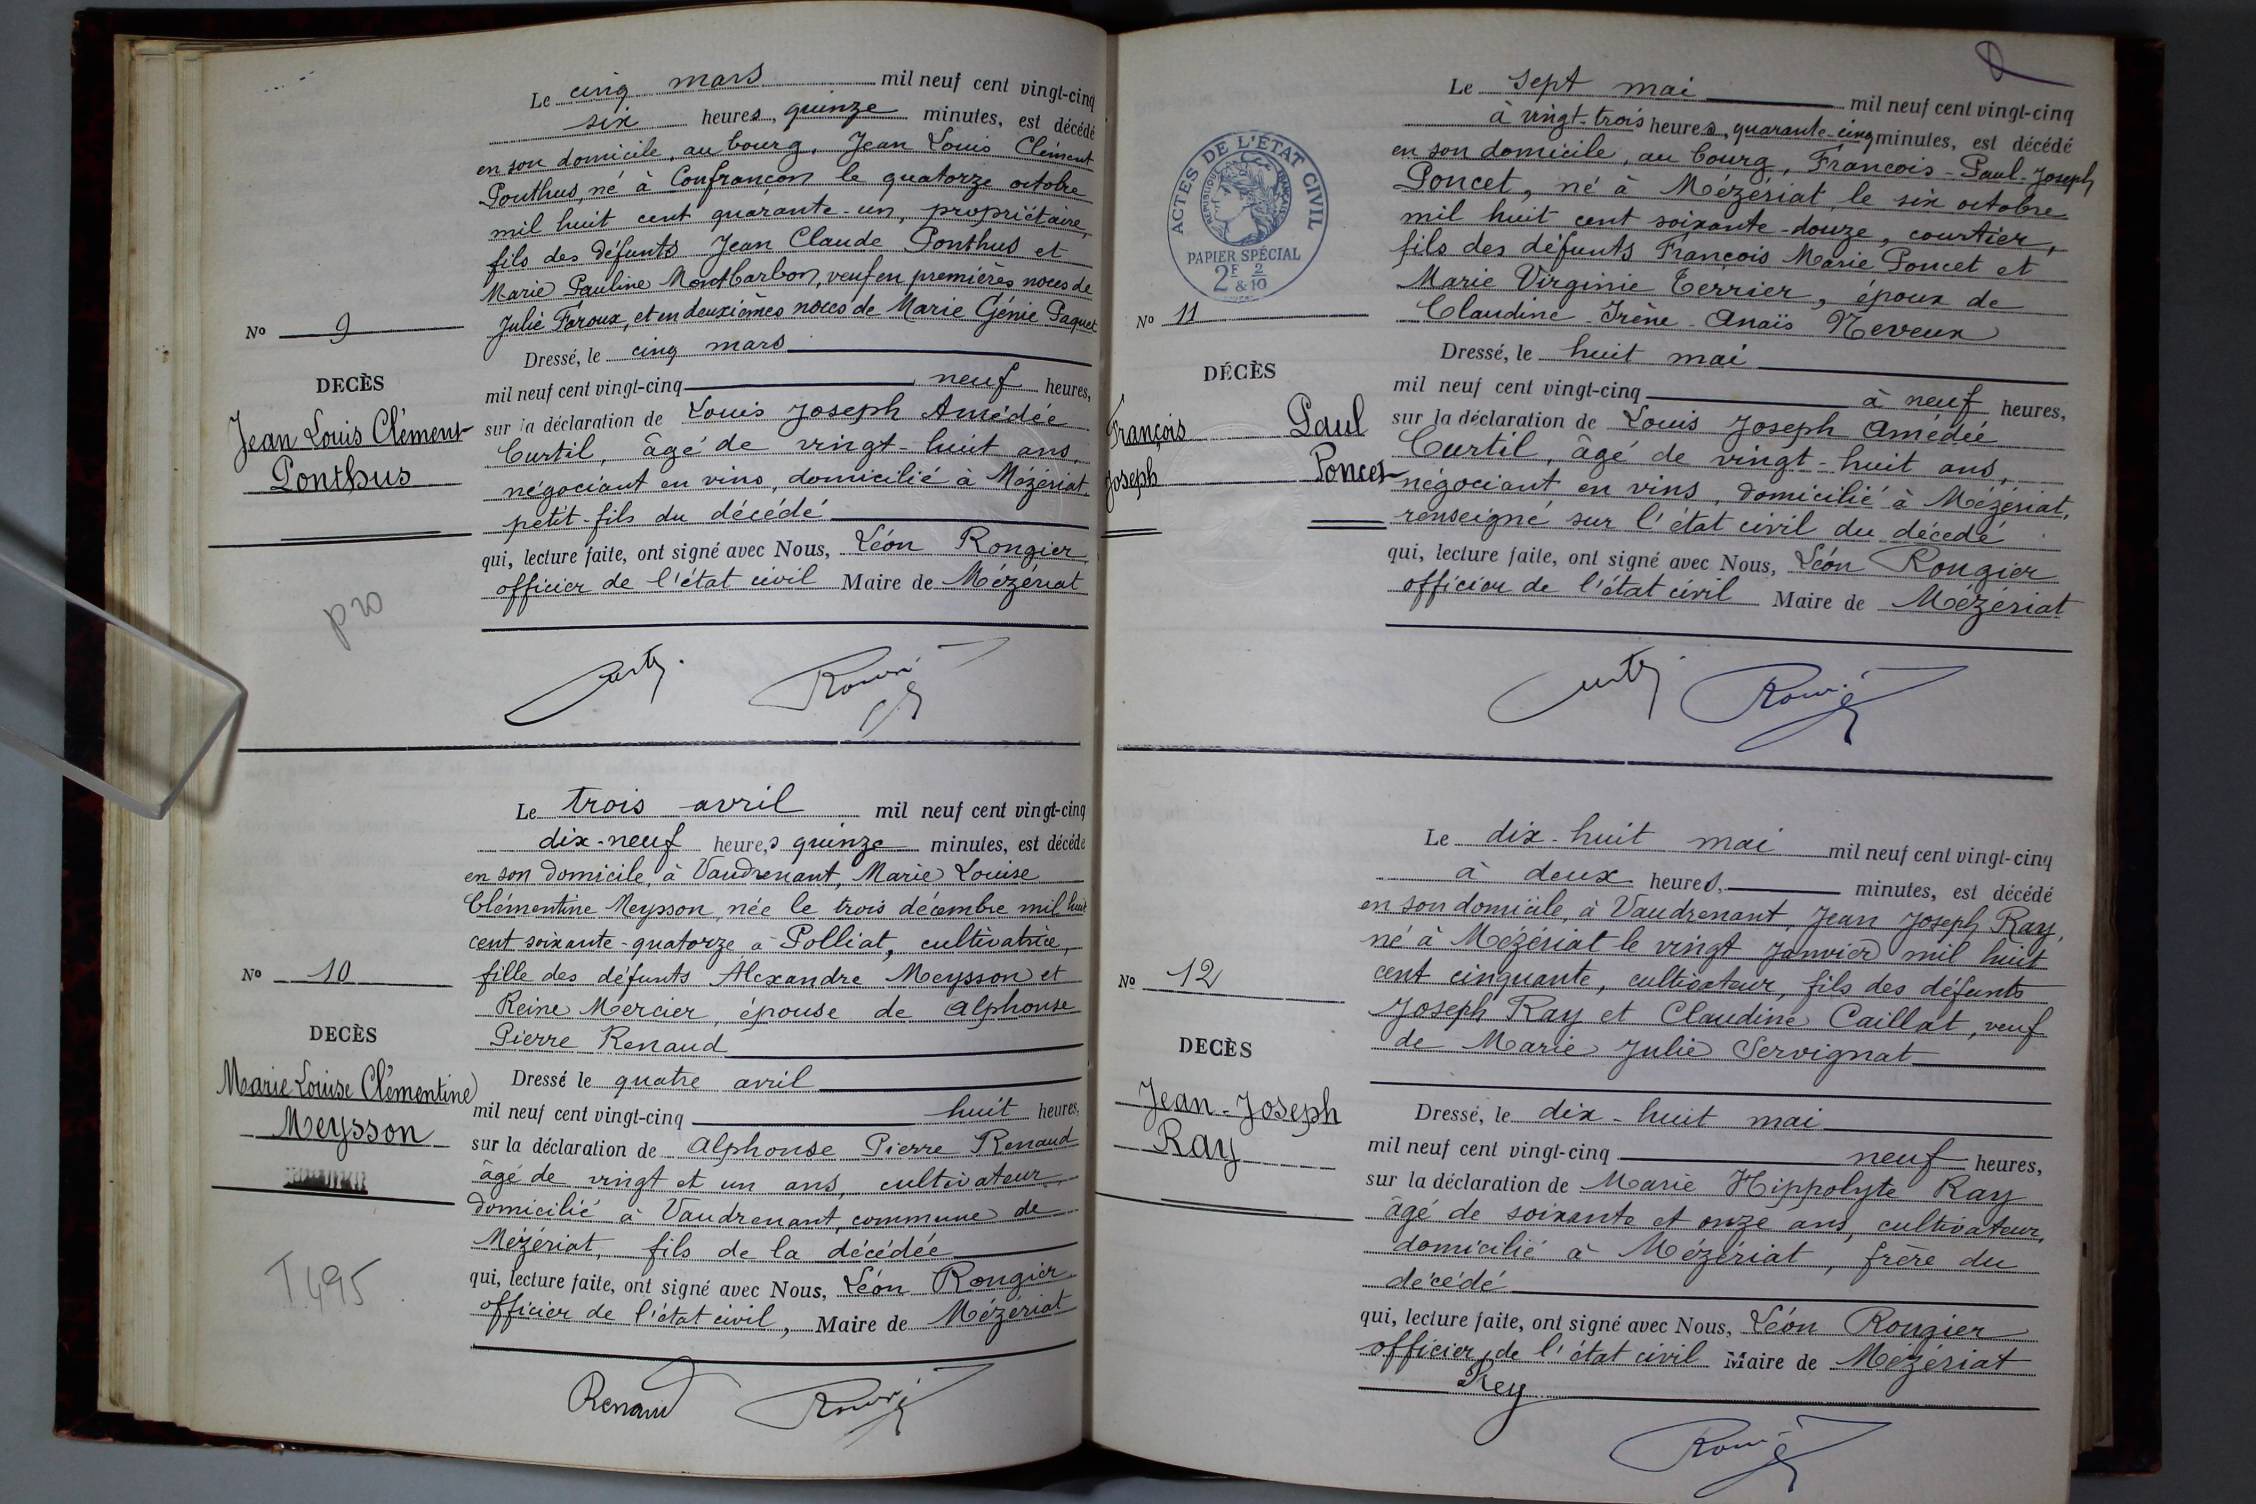 Le cinq mars mil neuf cent vingt-cinq
six heures, quinze minutes, est décédé
en son domicile, au bourg, Jean Louis Clément
Ponthus, né à Confrançon le quatorze octobre
mil huit cent quarante-un, propriétaire,
fils des défunts Jean Claude Ponthus et
Marie Pauline Montbarbon, veuf en premières noces de
Julie Faroux, et en deuxièmes noces de Marie Génie Paquet
No 9
DECÈS
Jean Louis Clément
Ponthus
pro
Dressé, le cinq mars
mil neuf cent vingt-cinq neuf heures,
sur la déclaration de Louis Joseph Amédée
Curtil, âgé de vingt-huit ans,
négociant en vins, domicilié à Mézériat,
petit-fils du décédé
qui, lecture faite, ont signé avec Nous, Léon Rongier
officier de l'état civil Maire de Mézériat
Le trois avril mil neuf cent vingt-cinq
dix-neuf heures quinze minutes, est décédé
en son domicile, à Vaudrenant, Marie Louise
Clémentine Meysson, née le trois décembre mil huit
cent soixante-quatorze à Polliat, cultivatrice,
fille des défunts Alexandre Meysson et
Reine Mercier, épouse de Alphonse
Pierre Renaud
No 10
DECÈS
Marie Louise Clémentine
Meysson
T.495
Dressé le quatre avril
mil neuf cent vingt-cinq huit heures,
sur la déclaration de Alphonse Pierre Renaud
âgé de vingt et un ans, cultivateur,
domicilié à Vaudrenant, commune de
Mézériat, fils de la décédée
qui, lecture faite, ont signé avec Nous, Léon Rongier
officier de l'état civil, Maire de Mézériat
Renaud
ACTES DE L'ÉTAT CIVIL
RÉPUBLIQUE FRANÇAISE
PAPIER SPÉCIAL
2F & 2/10
Le sept mai mil neuf cent vingt-cinq
à vingt-trois heures, quarante-cinq minutes, est décédé
en son domicile, au bourg, François-Paul-Joseph
Poncet, né à Mézériat, le six octobre
mil huit cent soixante-douze, courtier,
fils des défunts François Marie Poncet et
Marie Virginie Terrier, époux de
Claudine-Irène-Anaïs Neveux
No 11
DÉCÈS
François Paul
Joseph Poncet
Dressé, le huit mai
mil neuf cent vingt-cinq à neuf heures,
sur la déclaration de Louis Joseph Amédée
Curtil, âgé de vingt-huit ans,
négociant en vins, domicilié à Mézériat,
renseigné sur l'état civil du décédé
qui, lecture faite, ont signé avec Nous, Léon Rongier
officier de l'état civil Maire de Mézériat
Le dix-huit mai mil neuf cent vingt-cinq
à deux heures, minutes, est décédé
en son domicile, à Vaudrenant, Jean Joseph Ray,
né à Mézériat le vingt janvier mil huit
cent cinquante, cultivateur, fils des défunts
Joseph Ray et Claudine Caillat, veuf
de Marie Julie Servignat
No 12
DECÈS
Jean-Joseph
Ray
Dressé, le dix-huit mai
mil neuf cent vingt-cinq neuf heures,
sur la déclaration de Marie Hippolyte Ray
âgé de soixante et onze ans, cultivateur,
domicilié à Mézériat, frère du
décédé
qui, lecture faite, ont signé avec Nous, Léon Rongier
officier de l'état civil Maire de Mézériat
Rey